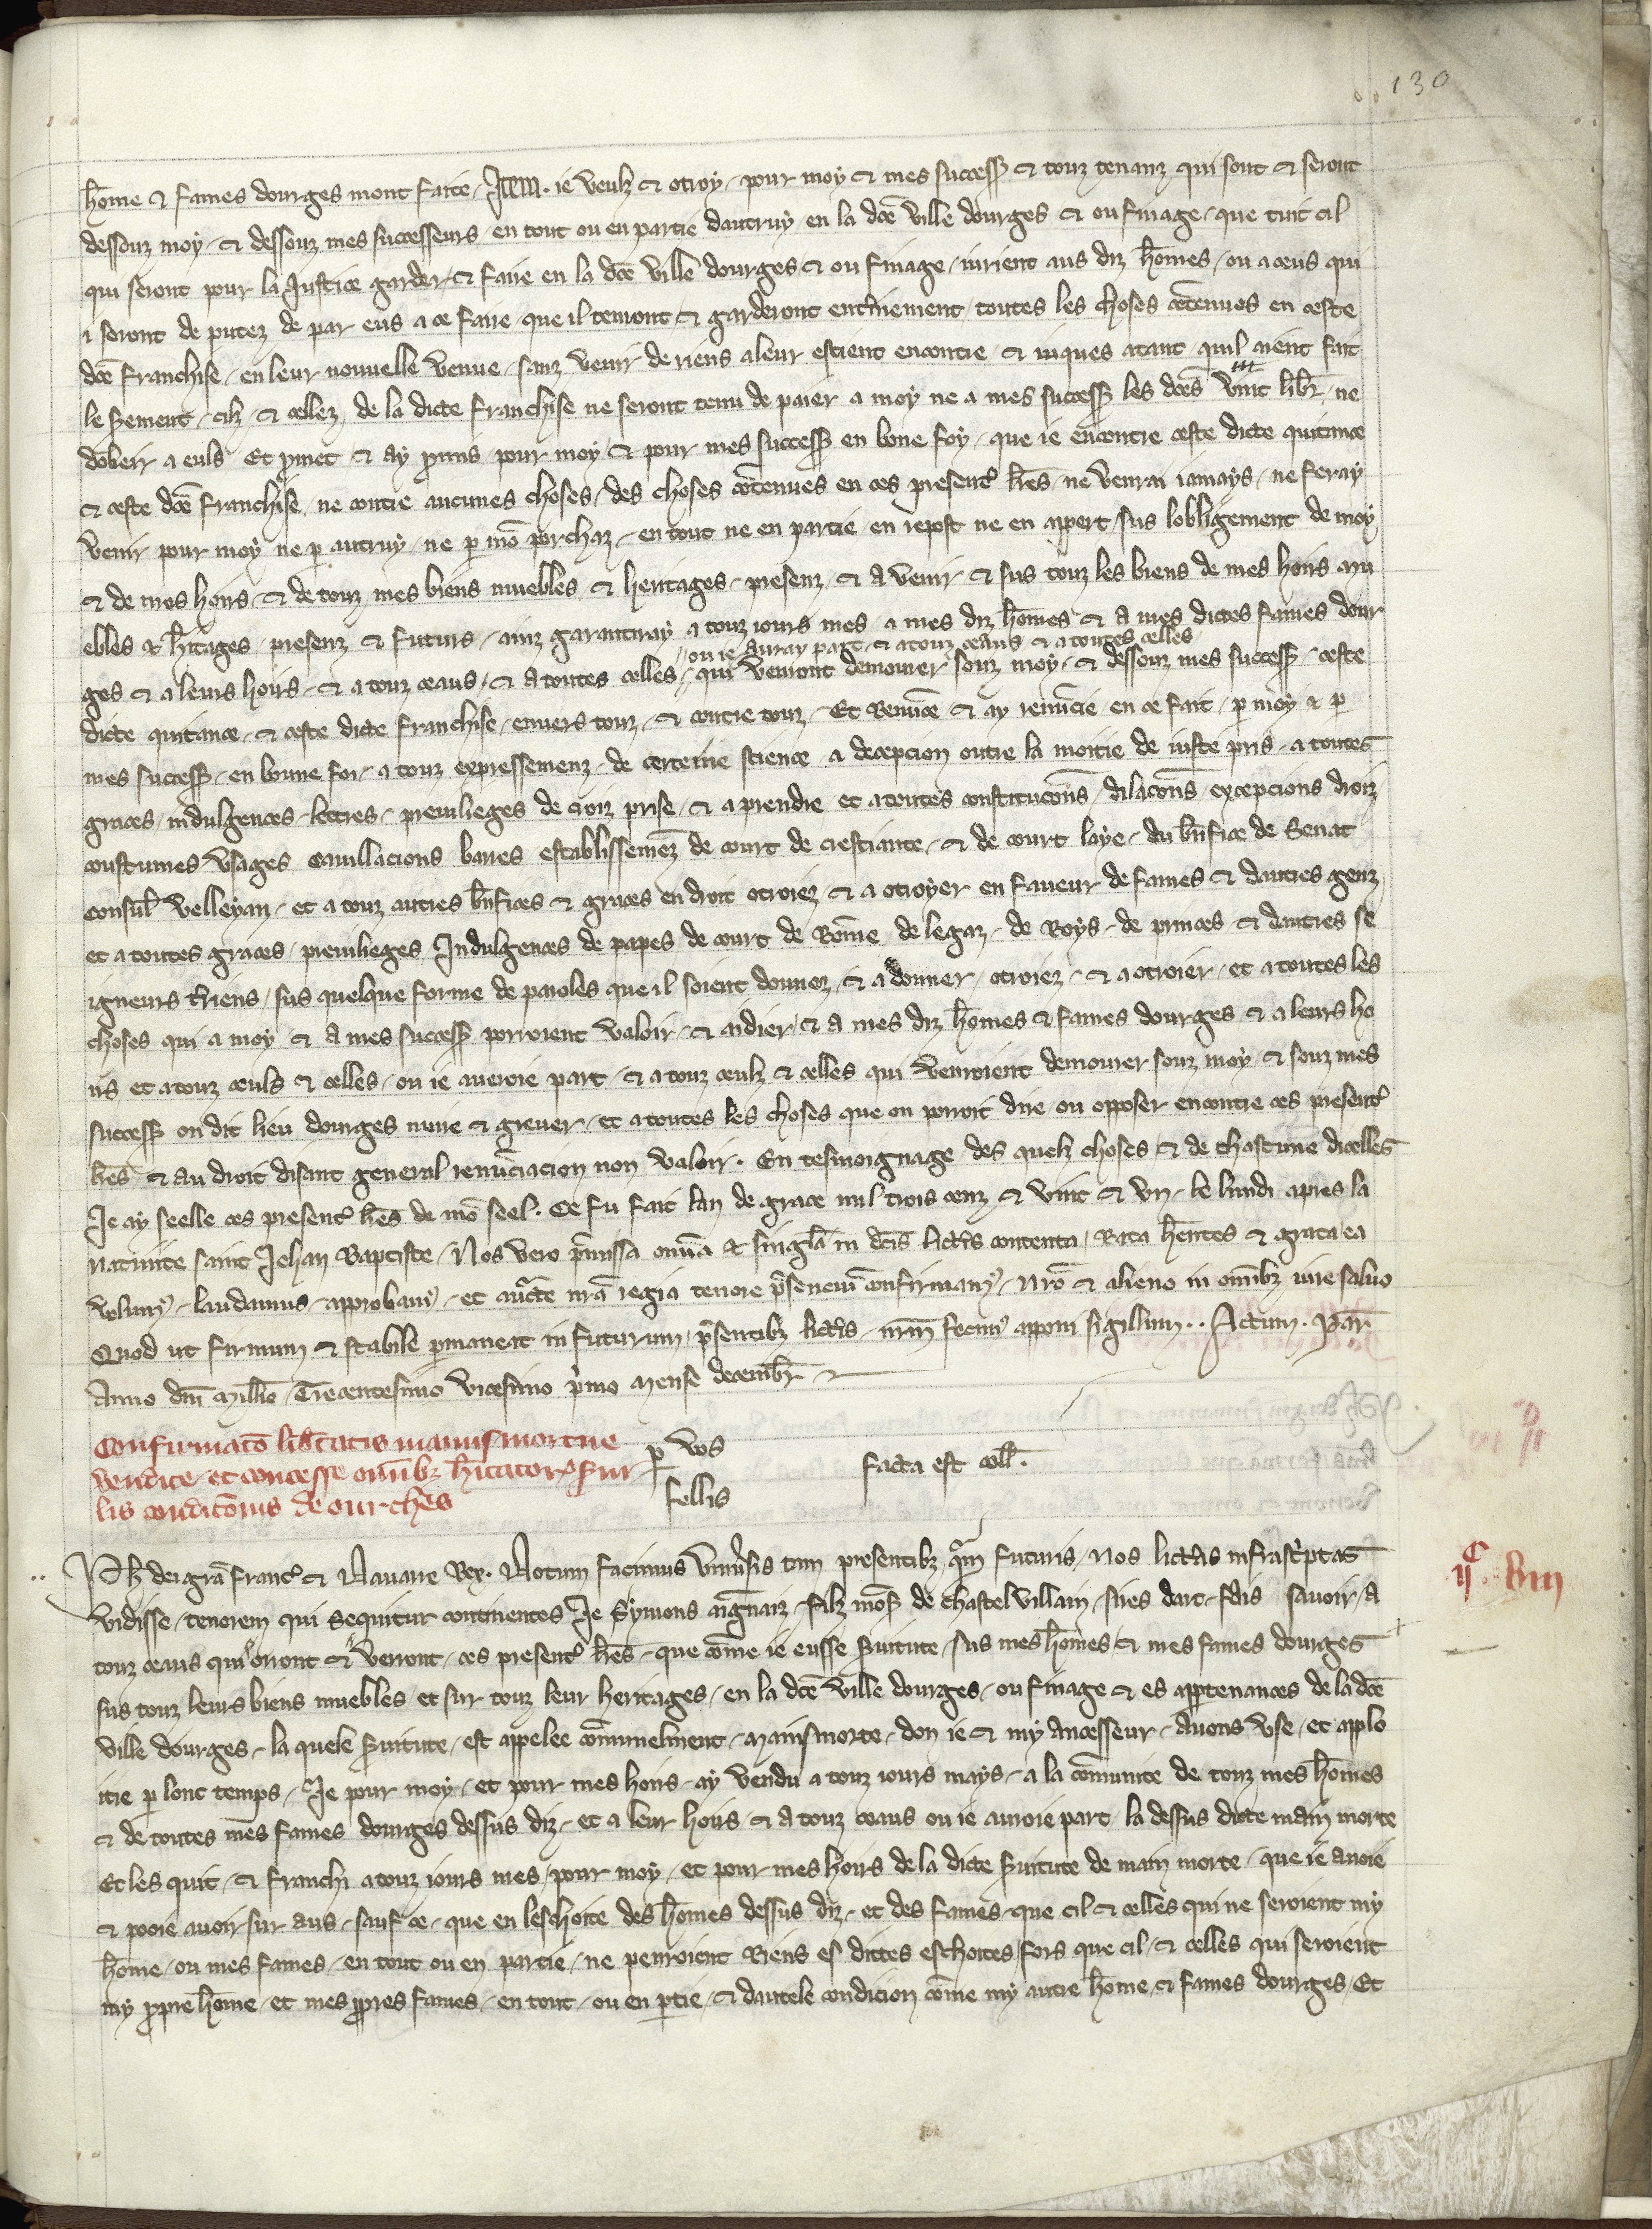 130
hōme & fames dourges mont faite. Item. ie veulz & otroy, pour moy & mes success̄ & touz tenanz qui sont & seront
dessouz moy, & dessouz mes successeurs, en tout ou en partie dautruy en la dc̄e ville dourges & ou finage, que tuit cil
qui seront pour la Justice garder & faire en la dc̄e ville dourges & ou finage, iurient aus diz hōmes, ou a ceus qui
i seront de putez de par eus a ce faire que il tenront & garderont entieriement toutes les choses cōtenues en ceste
dc̄e franchise, en leur nouvelle venue, sanz venir de riens a leur escient encontre, & iuques atant quil aient fait
le serement, cilz & cellez, de la dicte franchise ne seront tenu de paier a moy ne a mes success̄ les dc̄es vint libr̄, ne
dobeir a euls. Et p̄met & ay p̄mis pour moy & pour mes success̄ en bone foy, que ie encontre ceste dicte quitance
& ceste dc̄e franchise, ne contre aucunes choses, des choses cōtenues en ces present̾ lr̄es, ne venrai iamays, ne feray
venir pour moy ne p̱ autruy, ne p̱ mō porchaz, en tout ne en partie en repost ne en apert, sus lobligement de moy
& de mes hoirs, & de touz mes biens muebles & heritages, presenz, & a venir, & sus touz les biens de mes hoirs mu
ebles & h̄itages, presenz & futurs, ainz garantiray a touz iours mes a mes diz hōmes & a mes dictes fames dour
ou ie auray part, & a touz ceaus & a toutes celles
ges & a leurs hoirs, & a touz ceaus, & a toutes celles, qui venront demourer souz moy, & dessouz mes success̄, ceste
dicte quitance, & ceste dicte franchise, envers touz, & contre touz. Et Renunce & ay renuncie en ce fait, p̱ moy & p̱
mes success̄, en bonne foi, a touz expressemenz, de certeine science a decepcion outre la moitie de iuste pris, a toutes
graces, indulgences, lettres, previlieges de croiz prise, & a prendre et a toutes constitucōns, dilacōns, excepcions droiz
coustumes Usages cavillacions barres establissemez̄ de court de crestiante, & de court laye, du bn̄fice de Senat
consul̄ velleyan, et a touz autres bn̄fices & graces en droit otroiez & a otroyer en faveur de fames & dautres genz
et a toutes graces, previlieges Indulgences de papes de court de Rōme de legaz, de Roys, de princes & dautres se
igneurs t̾riens, sus quelque forme de paroles que il soient donnez, & a donner, otroiez, & a otroier, et a toutes les
choses qui a moy & a mes success̄ porroient valoir & aidier, & a mes diz hōmes & fames dourges & a leurs ho
irs et a touz ceuls & celles, ou ie averoie part, & a touz ceulz & celles qui venroient demourer souz moy & souz mes
success̄ ou dit lieu dourges nuire & grever, et a toutes les choses que on porroit dire ou opposer encontre ces present̾
lr̄es & au droit disant general renūciacion non valoir. En tesmoignage des quelz choses & de chascune dicelles
Je ay seelle ces present̾ lr̄es de mō seel. Ce fu fait lan de grace mil trois cenz & vint & un, le lundi apres la
nativite saint Jehan Baptiste. Nos vero p̄missa omīa & singl̄a in dc̄is litt̾is contenta, Rata h̄entes & grata ea
volum̾, laudamus, approbam̾, et auct̄e nr̄a regia tenore p̄sencium cōnfirmam̾, nr̄o & alieno in omībz iure salvo
Quod ut firmum & stabile p̱maneat in futurum, p̄sentibz litt̾is, nr̄m fecim̾ apponi sigillum.. Actum. Par̄.
Anno dn̄i Mill̄io, Trecentesimo vicesimo p̾mo mense decembr̄
Confirmatō lib̾tatis manusmortue p̱ vos
vendite, et concesse omībz h̄itator̾ servi facta est coll̄.
lis conditōnis de ourches fellis
Ph̄ dei grā franc̾ & Navarre Rex. Notum facimus Univ̾sis tam presentibz q̄m futuris, nos litt̾as infrasc̾ptas
ijc. viii
vidisse, tenorem qui sequitur continentes. Je Symons aignaiz, filz mōs de chastelvillain, sires darc, fais savoir, a
touz ceaus qui orront & verront, ces present̾ lr̄es, que cōme ie eusse s̄vitute, sus mes hōmes, & mes fames dourges
sus touz leurs biens muebles, et sur touz leur heritages, en la dc̄e ville dourges, ou finage & es appartenances de la dc̄e
ville dourges, la quele s̄vitute, est appelee cōmunelment, mainsmorte, don ie & my ancesseur, avons use, et apslo
itie p̱ lonc temps, Je pour moy, et pour mes hoirs, ay vendu a touz iours mays, a la cōmunite de touz mes hōmes
& de toutes mes fames dourges dessus diz, et a leur hoirs, & a touz ceaus ou ie auroie part la dessus dicte main morte
Et les quit, & franchi a touz iours mes, pour moy, et pour mes hoirs de la dicte s̄vitute de main morte, que ie avoie
& pooie avoir sur aus, sauf ce, que en leschoite des hōmes dessus diz, et des fames, que cil & celles qui ne seroient my
hōme, ou mes fames, en tout ou en partie, ne penroient Riens es dittes eschoites, fors que cil, & celles qui seroient
my p̱pre hōme, et mes p̱pres fames, en tout, ou en p̱tie, & dautele condicion cōme my autre hōme, & fames dourges, Et